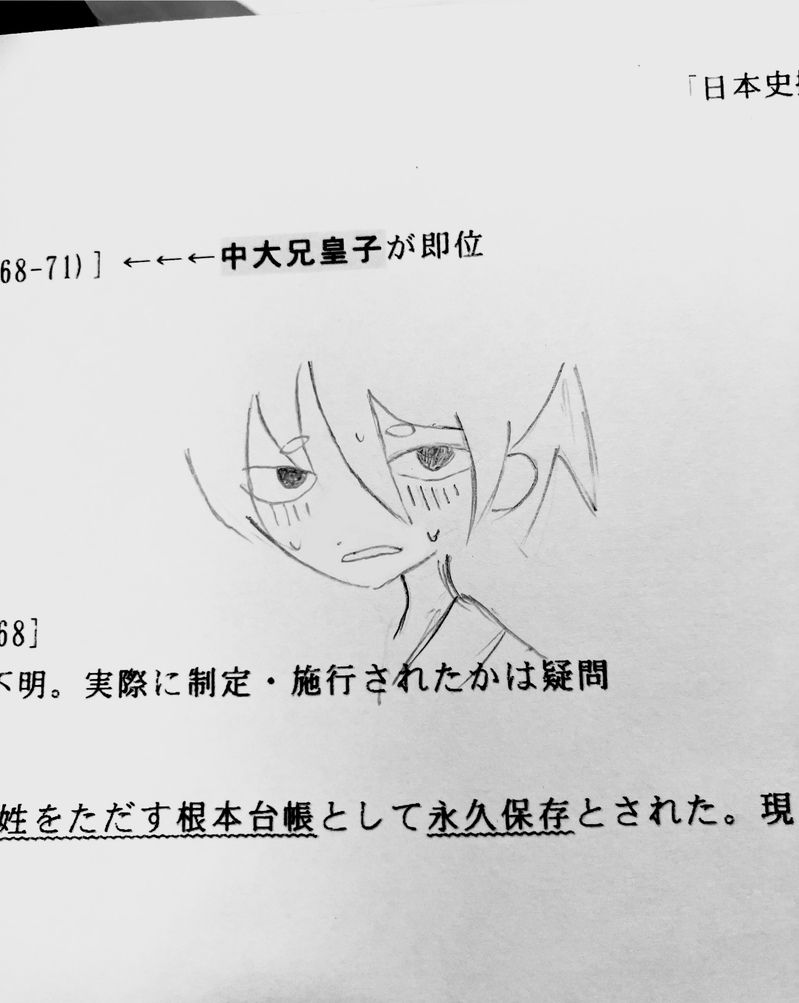 「日本史
68-71)] ←←←中大兄皇子が即位
68]
不明。実際に制定・施行されたかは疑問
姓をただす根本台帳として永久保存とされた。現